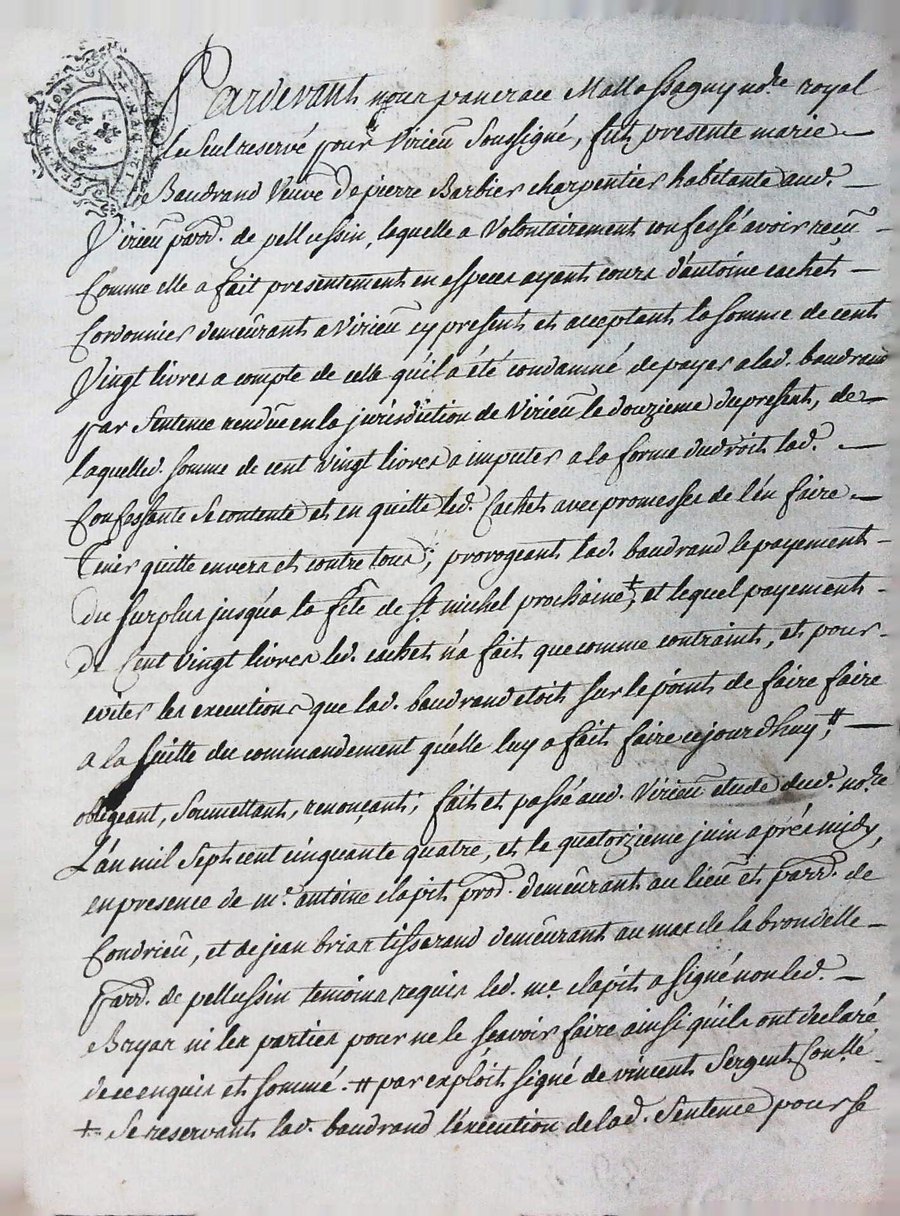 GEN.R. LION
Pardevant nous pancrace Mallassagny no.re royal
le seul reservé pour Virieu soussigné, fut presente marie
Baudrand Veuve de pierre Barbier charpentier habitante aud.
Virieu parr. de pellussin, laquelle a Volontairement confessé avoir reçu
Comme elle a fait presentement en especes ayant cours d'antoine cachet
Cordonnier demeurant a Virieu cy present et acceptant la somme de cent
Vingt livres a compte de celle qu'il a été condamné de payer a lad. baudrand
par sentence rendue en la jurisdiction de Virieu le douzieme du present, de
laquelled. somme de cent vingt livres a imputer a la forme du droit lad.
Confessante se contente et en quitte led. Cachet avec promesses de l'en faire
Tenir quitte envers et contre tous; provogeant lad. baudrand le payement
du surplus jusqu'a la fête de st. michel prochaine ‡, et lequel payement
de Cent vingt livres led. cachet n'a fait que comme contraint, et pour
eviter les executions que lad. baudrand etoit sur le point de faire faire
a la suitte du commandement qu'elle luy a fait faire cejourd'huy #,
obligeant, soumettant, renonçant; fait et passé aud. Virieu etude dud. no.re
L'an mil sept cent cinquante quatre, et le quatorzieme juin aprés midy,
en presence de m.e antoine clapit prod. demeurant au lieu et parr. de
Condrieu, et de jean briar tisserand demeurant au mas de la brondelle
parr. de pellussin temoins requis led. me. clapit a signé non led.
Bryar ni les parties pour ne le sçavoir faire ainsi qu'ils ont declaré
de ce enquis et sommé. # par exploit signé de vincent sergent
‡ Se reservant lad. baudrand l'execution de lad. sentence pour se